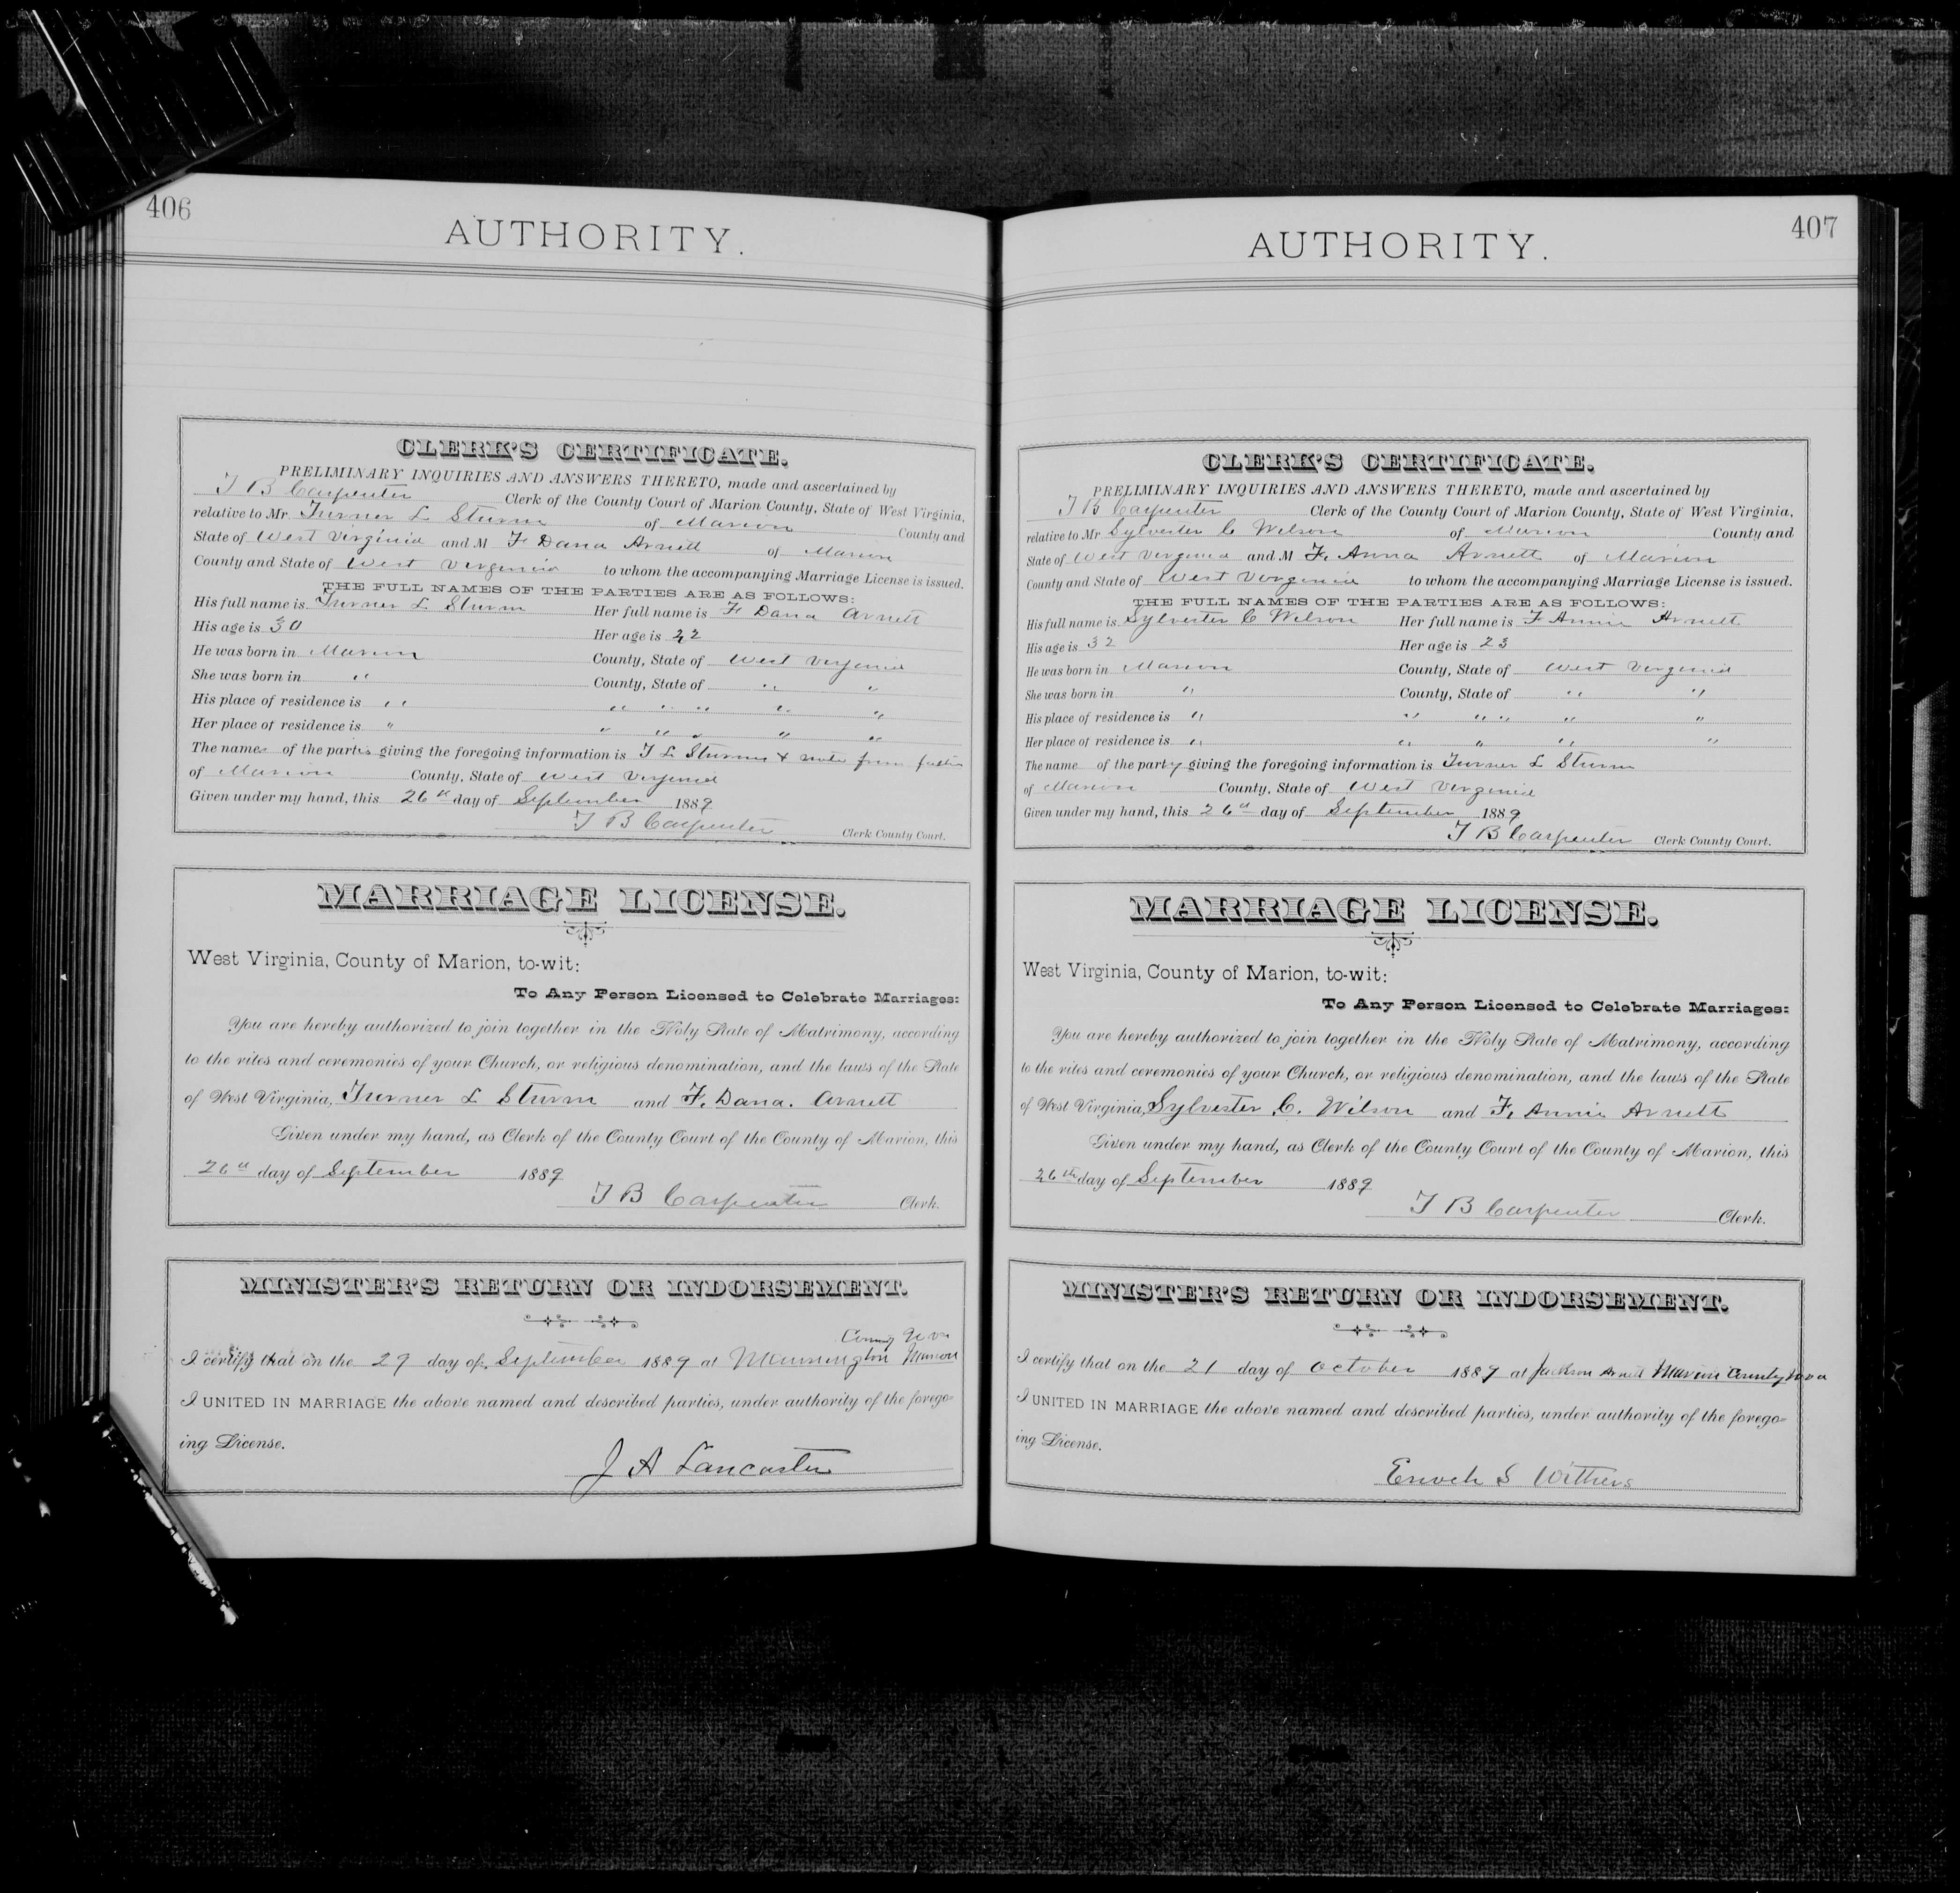 406
AUTHORITY.
CLERK'S CERTIFICATE.
PRELIMINARY INQUIRIES AND ANSWERS THERETO, made and ascertained by
T B Carpenter Clerk of the County Court of Marion County, State of West Virginia,
relative to Mr. Turner L Sturm of Marion County and
State of West Virginia and M F Dana Arnett of Marion
County and State of West Virginia to whom the accompanying Marriage License is issued.
THE FULL NAMES OF THE PARTIES ARE AS FOLLOWS:
His full name is Turner L Sturm Her full name is F Dana Arnett
His age is 30 Her age is 22
He was born in Marion County, State of West Virginia
She was born in " County, State of " "
His place of residence is " " " " " "
Her place of residence is " " " " " "
The names of the parties giving the foregoing information is T L Sturm & note from father
of Marion County, State of West Virginia
Given under my hand, this 26th day of September 1889
T B Carpenter Clerk County Court.
MARRIAGE LICENSE.
West Virginia, County of Marion, to-wit:
To Any Person Licensed to Celebrate Marriages:
You are hereby authorized to join together in the Holy State of Matrimony, according
to the rites and ceremonies of your Church, or religious denomination, and the laws of the State
of West Virginia, Turner L Sturm and F. Dana. Arnett
Given under my hand, as Clerk of the County Court of the County of Marion, this
26th day of September 1889
T B Carpenter Clerk.
MINISTER'S RETURN OR INDORSEMENT.
County W va
I certify that on the 29 day of September 1889 at Mannington Marion
I UNITED IN MARRIAGE the above named and described parties, under authority of the forego-
ing License.
J A Lancaster
407
AUTHORITY.
CLERK'S CERTIFICATE.
PRELIMINARY INQUIRIES AND ANSWERS THERETO, made and ascertained by
T B Carpenter Clerk of the County Court of Marion County, State of West Virginia,
relative to Mr Sylvester C Wilson of Marion County and
State of West Virginia and M F. Anna Arnett of Marion
County and State of West Virginia to whom the accompanying Marriage License is issued.
THE FULL NAMES OF THE PARTIES ARE AS FOLLOWS:
His full name is Sylvester C Wilson Her full name is F Annie Arnett
His age is 32 Her age is 23
He was born in Marion County, State of West Virginia
She was born in " County, State of " "
His place of residence is " " " " " "
Her place of residence is " " " " "
The name of the party giving the foregoing information is Turner L Sturm
of Marion County, State of West Virginia
Given under my hand, this 26th day of September 1889
T B Carpenter Clerk County Court.
MARRIAGE LICENSE.
West Virginia, County of Marion, to-wit:
To Any Person Licensed to Celebrate Marriages:
You are hereby authorized to join together in the Holy State of Matrimony, according
to the rites and ceremonies of your Church, or religious denomination, and the laws of the State
of West Virginia, Sylvester C. Wilson and F. Annie Arnett
Given under my hand, as Clerk of the County Court of the County of Marion, this
26th day of September 1889
T B Carpenter Clerk.
MINISTER'S RETURN OR INDORSEMENT.
I certify that on the 21 day of October 1889 at Jackson Marion County W va
I UNITED IN MARRIAGE the above named and described parties, under authority of the forego-
ing License.
Enoch S Withers